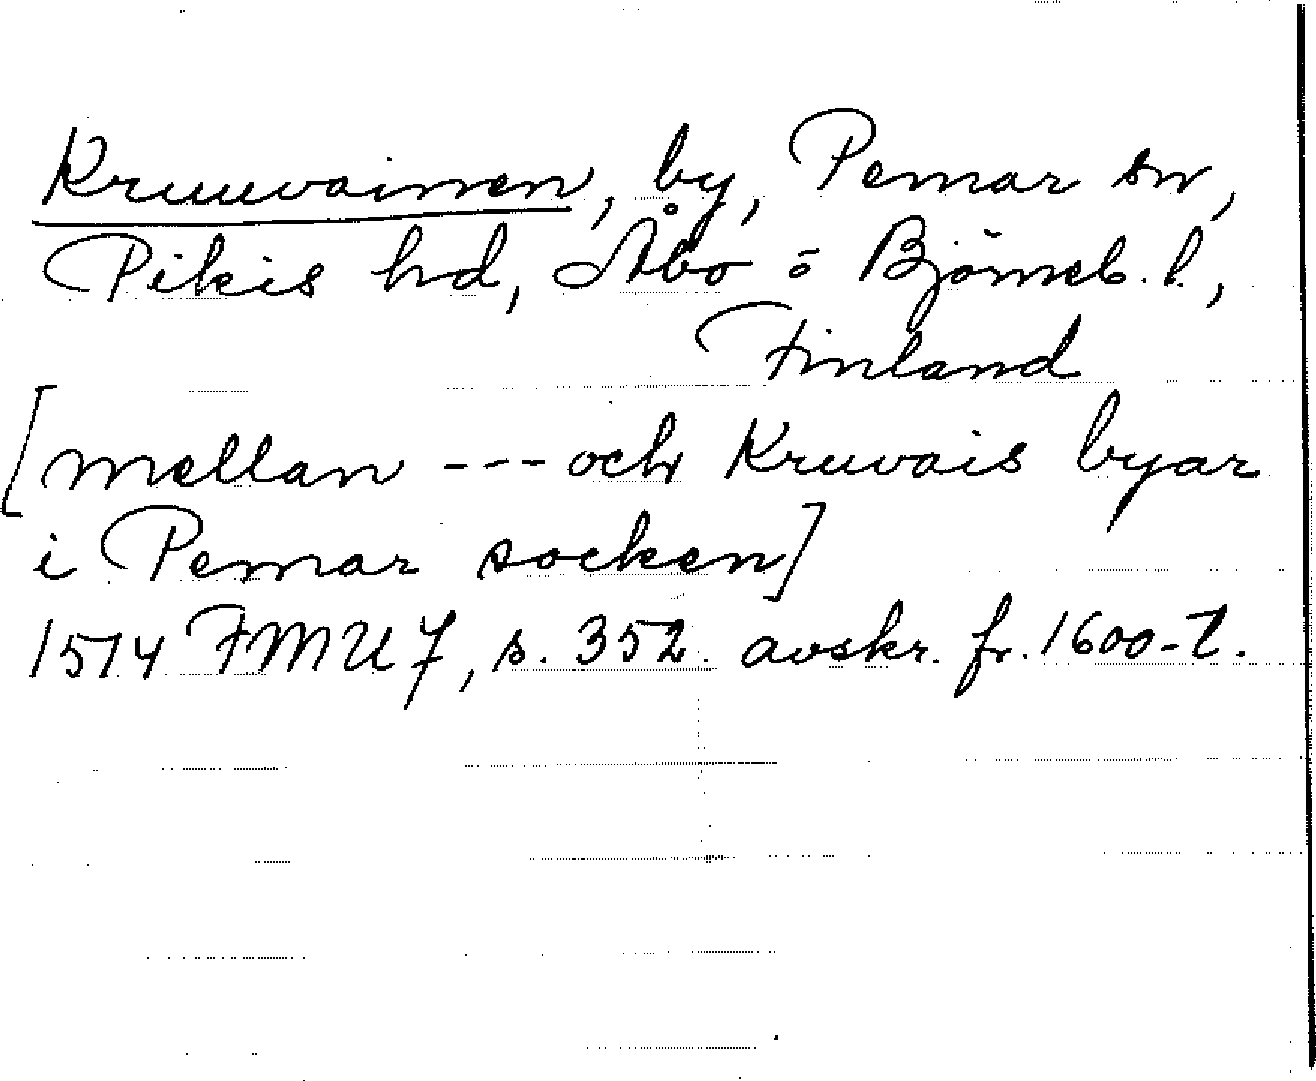 Kruuvainen, by, Pemar sn,
Pikis hd, Åbo o Björneb. l.,
Finland
[mellan --- och Kruvais byar
i Pemar socken]
1514 FMU 7, s. 352 avskr. fr. 1600-t.